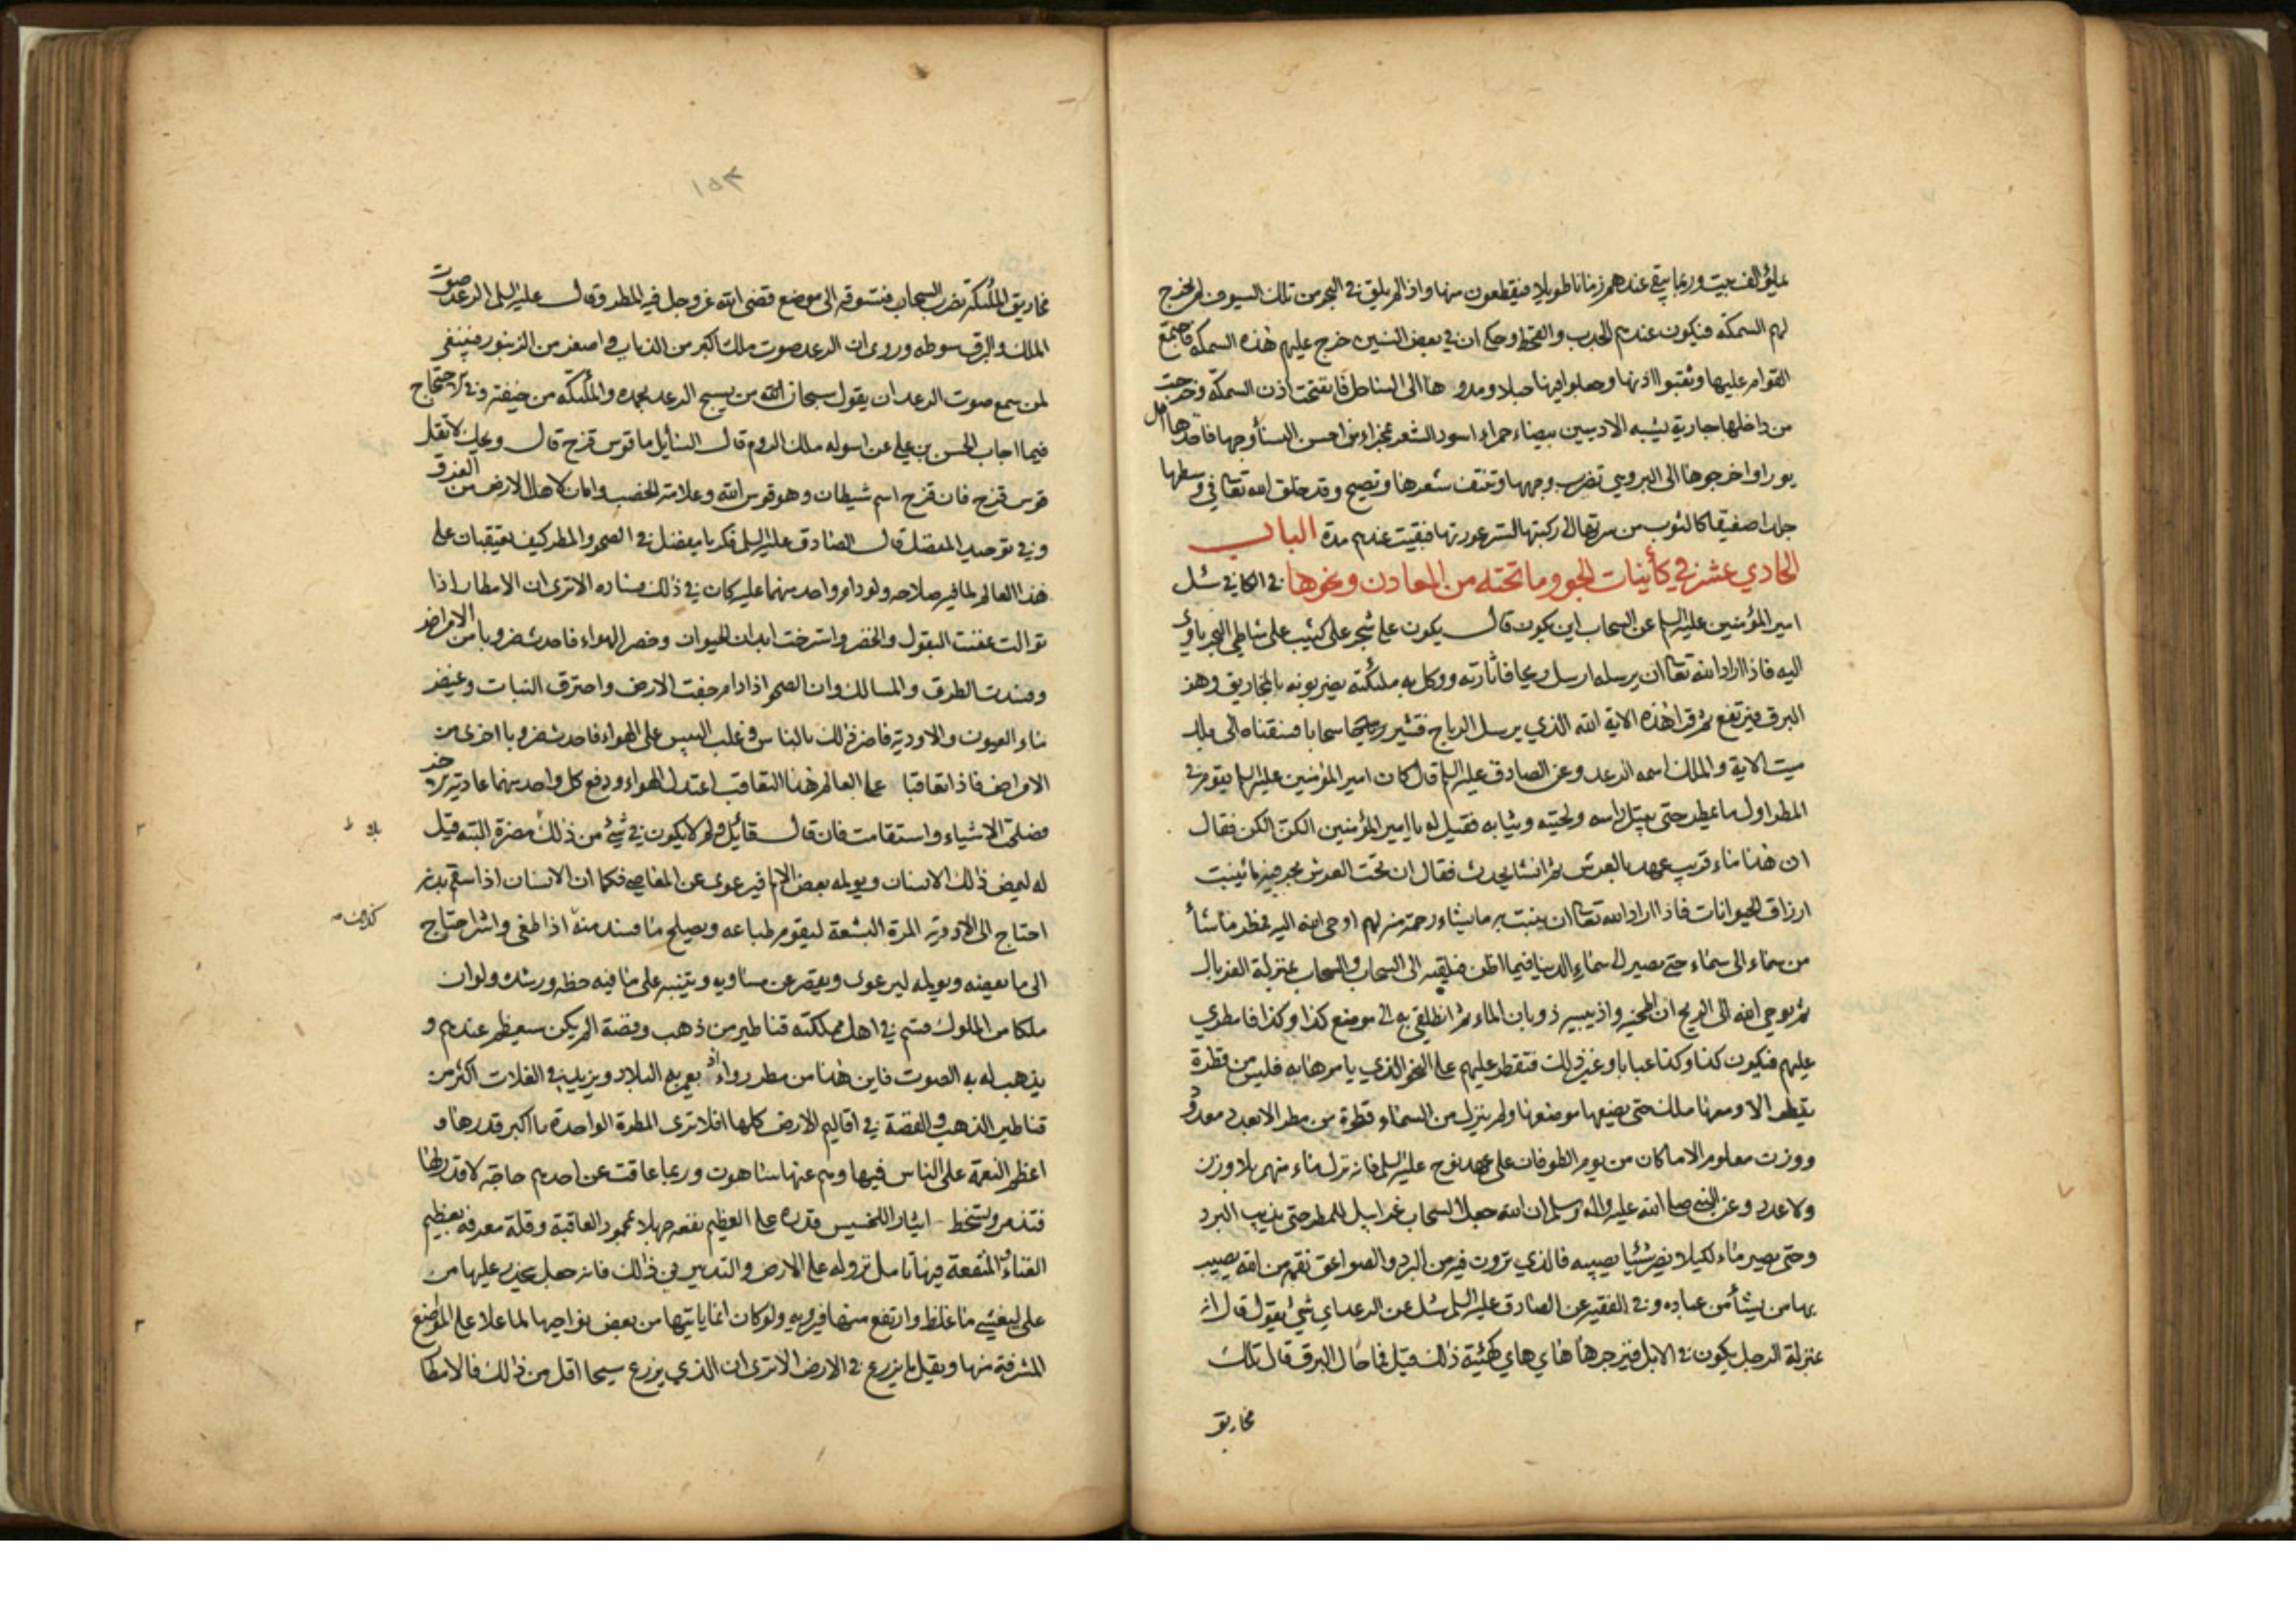 يملؤ الف بيت وربما يبقى عندهم زمانا طويلا فيقطعون منها واذا لم يلق في البحر من تلك السيوف لم يخرج
لهم السمكة فيكون عندهم الجدب والقحط وحكى ان في بعض السنين خرج عليهم هذه السمكة فاجتمع
القوام عليها وثقبوا اذنها وجعلوا فيها حبلا ومدوها الى الشاطئ فانفتحت اذن السمكة وخرجت
من داخلها جارية يشبه الادميين بيضاء حمراء اسود الشعر عجزاء من احسن النساء وجها فاخذها اهل
يورا واخرجوها الى البر وهي تضرب وجهها وتنتف شعرها وتصيح وقد خلق الله تعالى في وسطها
جلدا صفيقا كالثوب من سرتها الى ركبتها لستر عورتها فبقيت عندهم مدة الباب
الحادي عشر في كأينات الجو وما تحته من المعادن ونحوها في الكافي سئل
امير المؤمنين عليه السلم عن السحاب اين يكون قال يكون على شجر على كثيب على شاطئ البحر ياوي
اليه فاذا اراد الله تعالى ان يرسله ارسل ريحا فاثارته ووكل به ملئكته يضربونه بالمخاريق وهو
البرق فيرتفع ثم قرا هذه الاية الله الذي يرسل الرياح فتثير سحابا فسقناه الى بلد
ميت الاية والملك اسمه الرعد وعن الصادق عليه السلم قال كان امير المؤمنين عليه السلم يقوم في
المطر اول ما يمطر حتى يبتل راسه ولحيته وثيابه فقيل له يا امير المؤمنين الكن الكن فقال
ان هذا ماء قريب عهد بالعرش ثم انشا يحدث فقال ان تحت العرش بحر فيه ماء ينبت
ارزاق الحيوانات فاذا اراد الله تعالى ان ينبت به ما يشاء رحمة منه لهم اوحى الله اليه فمطر ما شاء
من سماء الى سماء حتى يصير الى سماء الدنيا فيما اظن فيلقيه الى السحاب والسحاب بمنزلة الغربال
ثم يوحى الله الى الريح ان اطحنيه واذيبيه ذوبان الماء ثم انطلقي به الى موضع كذا وكذا فامطري
عليهم فيكون كذا وكذا عبابا وغير ذلك فتقطر عليهم على النحو الذي يامرها به فليس من قطرة
يقطر الا ومعها ملك حتى يضعها موضعها ولم ينزل من السماء قطرة من مطر الا بعدد معدود
ووزن معلوم الا ما كان من يوم الطوفان على عهد نوح عليه السلم فانه نزل ماء منهمر بلا وزن
ولا عدد وعن النبي صلى الله عليه واله وسلم ان الله جعل السحاب غرابيل للمطر حتى يذيب البرد
وحتى يصير ماء لكيلا يضر شيئا يصيبه فالذي ترون فيه من البرد والصواعق نقمة من الله يصيب
بها من يشاء من عباده وفي الفقيه عن الصادق عليه السلم سئل عن الرعد اي شئ يقول قال انه
بمنزلة الرجل يكون في الابل فيزجرها هاي هاي كهيئة ذلك قيل فما حال البرق قال تلك
مخاريق
١٥٣
مخاريق الملئكة يضرب السحاب فتسوقه الى موضع قضى الله عز وجل فيه المطر وقال عليه السلم الرعد صوت
الملك والبرق سوطه وروى ان الرعد صوت ملك اكبر من الذباب واصغر من الزنبور فينبغى
لمن سمع صوت الرعد ان يقول سبحان الله من يسبح الرعد بحمده والملئكة من خيفته وفي الاحتجاج
فيما اجاب الحسن بن علي عن اسولة ملك الروم قال السائل ما قوس قزح قال ويحك لا تقل
قوس قزح فان قزح اسم شيطان وهو قوس الله وعلامة الخصب وامان لاهل الارض من الغرق
وفي توحيد المفضل قال الصادق عليه السلم فكر يا مفضل في الصحو والمطر كيف يعتقبان على
هذا العالم لما فيه صلاحه ولو دام واحد منهما عليه كان في ذلك فساده الا ترى ان الامطار اذا
توالت عفنت البقول والخضر واسترخت ابدان الحيوان وخصر الهواء فاحدث ضروبا من الامراض
وفسدت الطرق والمسالك وان الصحو اذا دام جفت الارض واحترق النبات وغيض
ماء العيون والاودية فاضر ذلك بالناس وغلب اليبس على الهواء فاحدث ضروبا اخرى من
الامراض فاذا تعاقبا على العالم هذا التعاقب اعتدل الهواء ودفع كل واحد منهما عادية الاخر
فصلحت الاشياء واستقامت فان قال قائل ولم لا يكون في شئ من ذلك مضرة البتة قيل
له ليمض ذلك الانسان ويولمه بعض الالم فيرعوى عن المعاصي فكما ان الانسان اذا سقم بدنه
احتاج الى الادوية المرة البشعة ليقوم طباعه ويصلح ما فسد منه اذا طغى واشر احتاج
الى ما يعضه ويولمه ليرعوى ويقصر عن مساويه ويتنبه على ما فيه حظه ورشده ولو ان
ملكا من الملوك قسم في اهل مملكته قناطير من ذهب وفضة الم يكن سيعظم عندهم و
يذهب له به الصوت فاين هذا من مطرة رواء اذ يعمر به البلاد ويزيد في الغلات اكثر من
قناطير الذهب والفضة في اقاليم الارض كلها افلا ترى المطرة الواحدة ما اكبر قدرها و
اعظم النعمة على الناس فيها وهم عنها ساهون وربما عاقت عن احدهم حاجة لا قدر لها
فتذمر وتسخط ايثارا للخسيس قدره على العظيم نفعه جهلا بمحمود العاقبة وقلة معرفه بعظيم
الغناء والمنفعة فيها تامل نزوله على الارض والتدبير في ذلك فانه جعل ينحدر عليها من
على ليغشى ما غلظ وارتفع منها فيرويه ولو كان انما ياتيها من بعض نواحيها لما علا على المواضع
المشرفة منها ويقل ما يزرع في الارض الا ترى ان الذي يزرع سيحا اقل من ذلك فالامطا